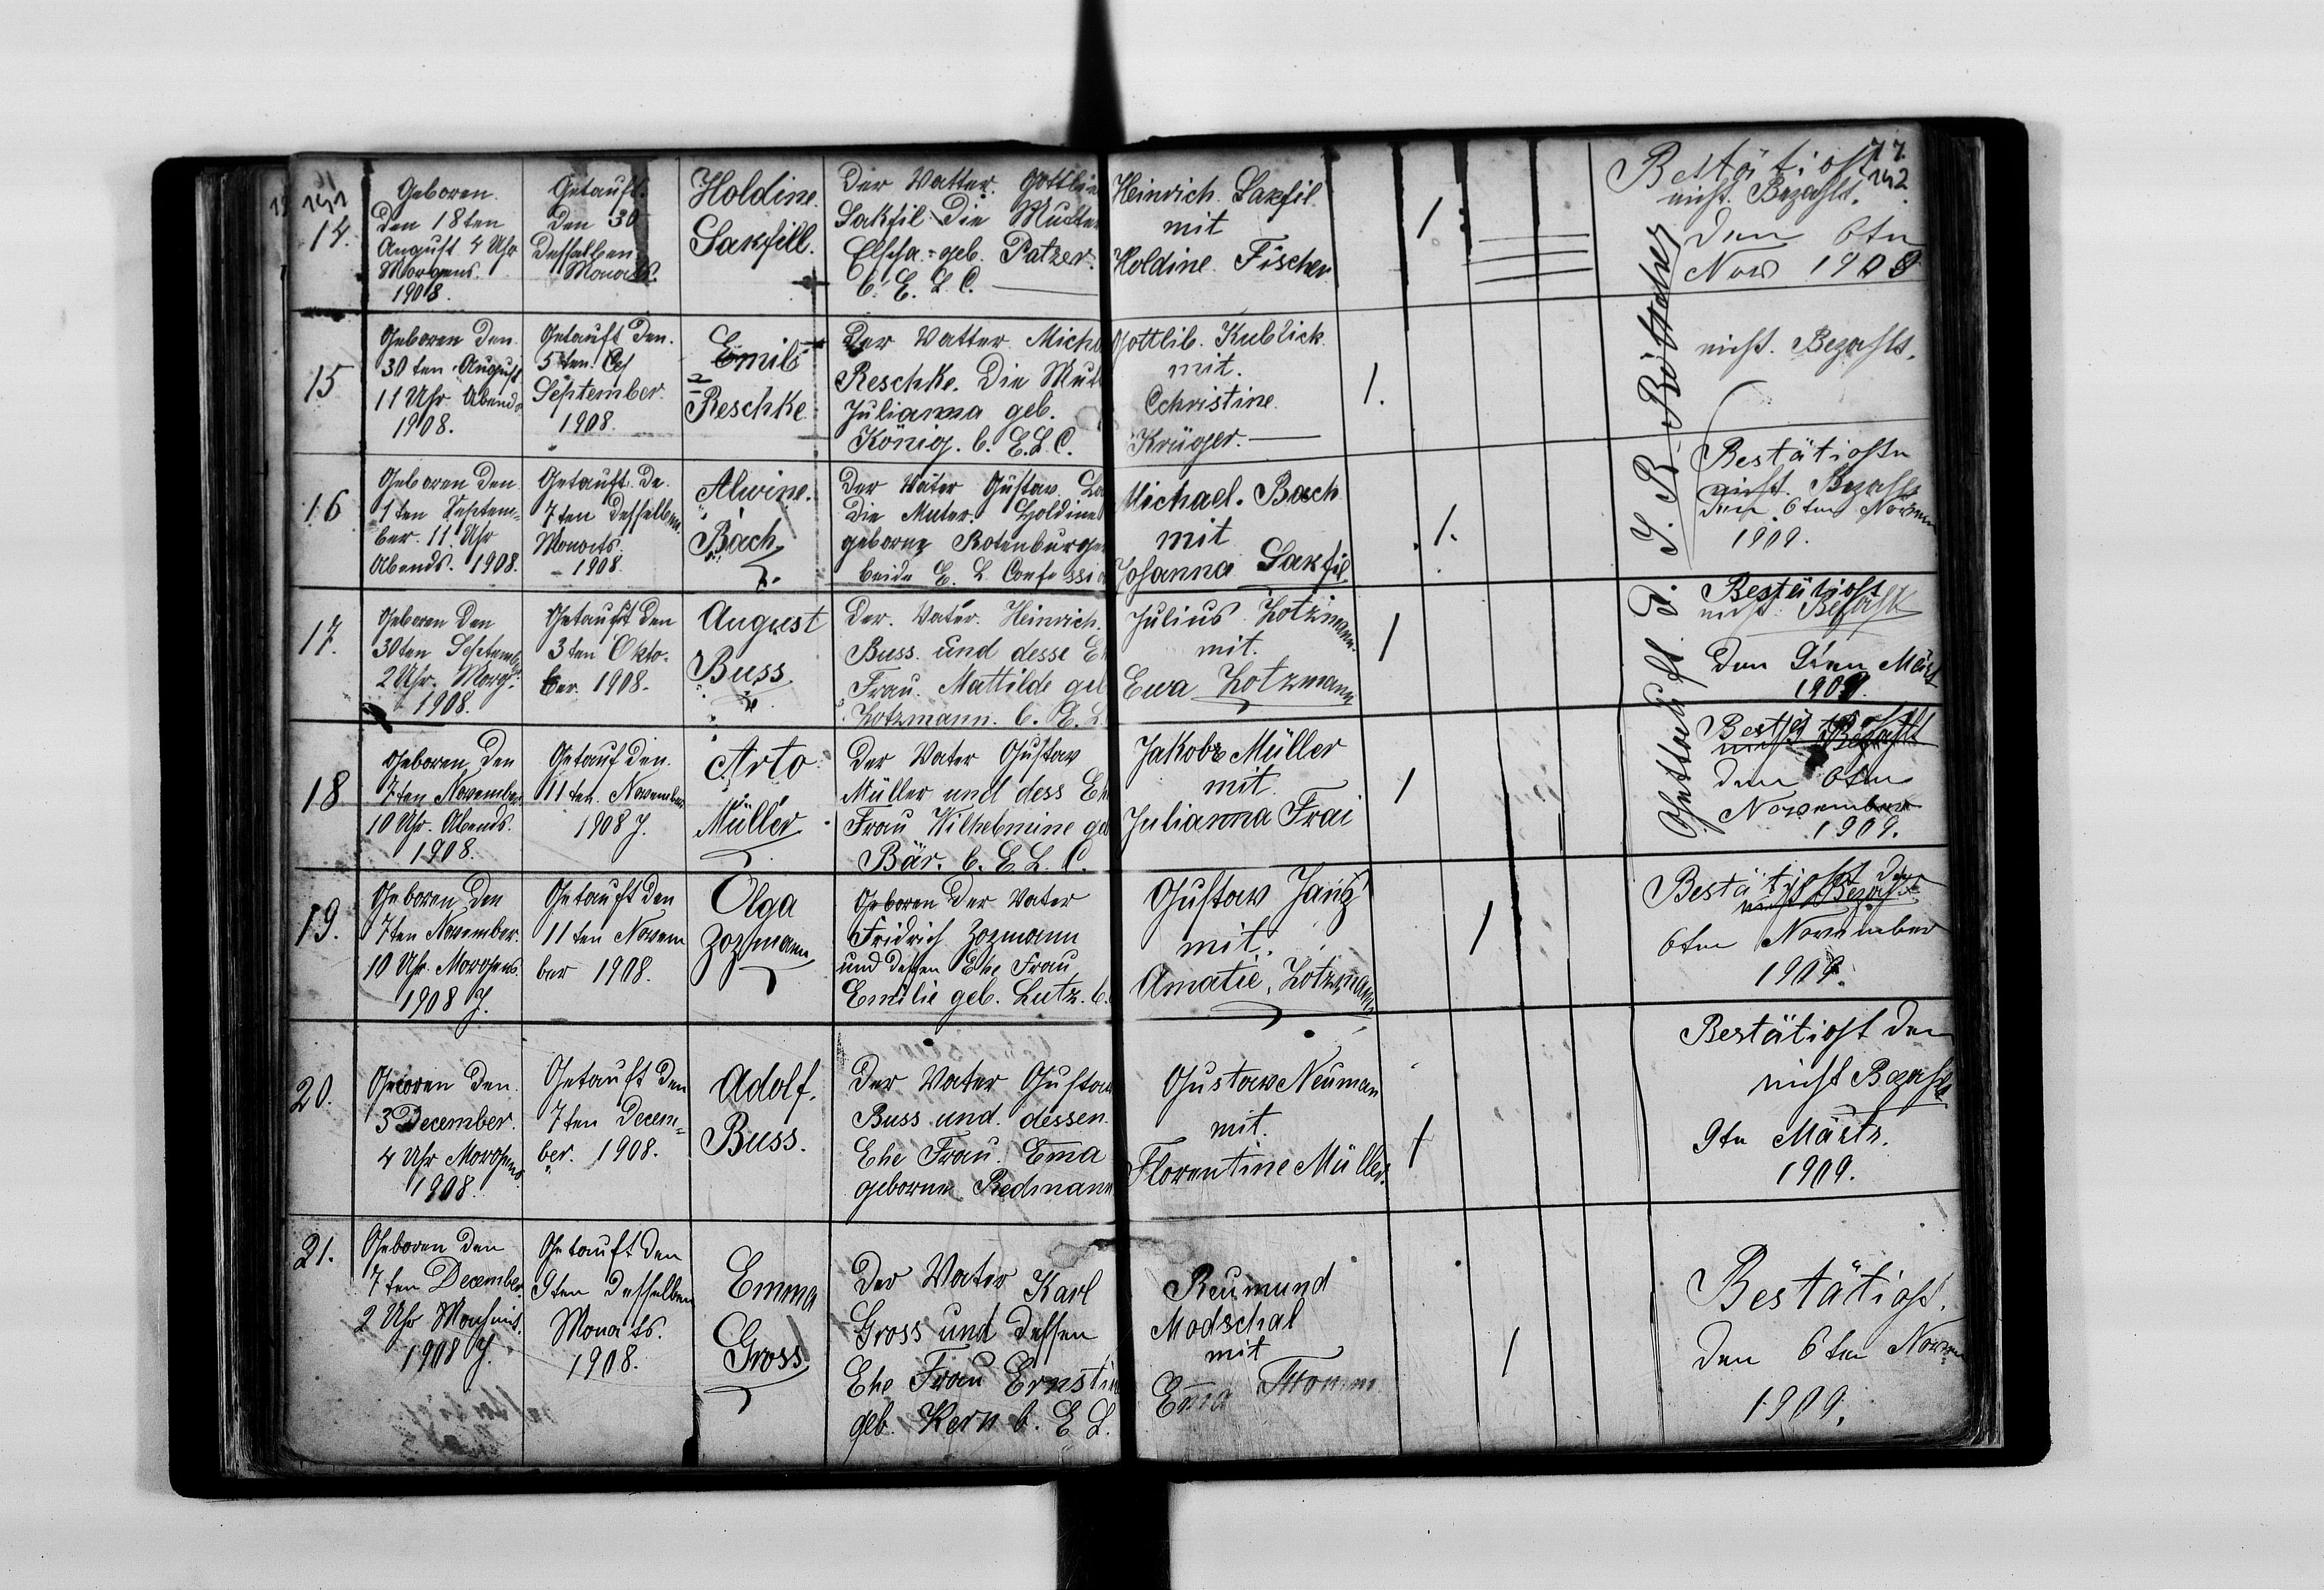 191
14.
Geboren.
Den 18ten
August 4 Uhr
Morgens.
1908.
Getauft.
Den 30
Desselben
Monats.
Holdine.
Sakfill.
Der Vatter. Gottlie
Sakfil. Die Mutter
geb. Patzer.
b. E. L. C.
Heinrich. Sakfil
mit
Holdine. Fischer
1
77.
192
Bestätigt
nicht. Bezahlt.
Den 6tn
Now 1908
15
Geboren Den.
30ten August
11 Uhr Abends
1908.
Getauft Den.
5ten
September.
1908.
Emil
Reschke
Der Vatter Micha
Reschke. Die Mut
Julianna geb.
König. b. E.L.C.
Gottlib. Kublick
mit.
Cchristine.
Krüger.
1.
nicht. Bezahlt.
16
Geboren Den
1ten Septem-
ber. 11 Uhr
Abends. 1908.
Getauft. De.
7ten Desselben
Monats.
1908
Alwine.
Bach
Der Väter Gustav
Die Muter. Holdine
geborne Rotenburge
beide E. L Confessi
Michael. Bach
mit
Johanna Sakfil
1.
Bestätigt
nicht. Bezahlt
Den 6ten Novem
1909.
17.
Geboren Den
30ten Septemb
2 Uhr. Morg.
1908.
Getauft Den
3ten Okto-
ber. 1908.
August
Buss.
Der. Vater. Heinrich.
Buss. und desse Eh
Frau. Mattilde geb
Zotzmann. b. E. L.
Julius Zotzmann
mit.
Ewa Zotzmann
1
Bestätigt
nicht Bezahlt
Den März
1909.
18
Geboren Den
7ten November
10 Uhr. Abends.
1908.
Getauf Den.
11ten. November
1908 J.
Arto
Müller
Der Vater Gustav
Müller und dess Eh
Frau Wilhelmine geb
Bär. b. E L. C.
Jakob Müller
mit
Julianna Frai
1
nicht Bezahlt
Den 6ten
November
1909.
19.
Geboren Den
7ten November.
10 Uhr. Morgens.
1908 J.
Getauft Den
11ten Novem
ber 1908.
Olga
Zozmann
Geboren Der Vater
Fridrich Zozmann
und dessen Ehe Frau
Emilie geb. Lutz. b.
Gustav Janz
mit.
Amatie. Zotzmann
1
Bestätigt Den
nicht Bezahlt
6ten November
1909.
20.
Geboren Den.
3 December.
4 Uhr Morgens
1908.
Getauft Den
7ten Decem-
ber. 1908.
Adolf.
Buss.
Der Vater Gustav
Buss und. dessen.
Ehe Frau. Ema
geborne Redmann
Gustav Neuman
mit.
Florentine Müller.
1
Bestätigt Den
nicht Bezahlt
9tn Märtz.
1909.
21.
Geboren Den
7ten December.
2 Uhr
1908 J.
Getauft Den
9ten Desselben
Monats.
1908.
Emma
Gross
Der Vater Karl
Gross und Dessen
Ehe Frau Ernstin
geb. Kern b. E L.
Reumund
Modschal
mit
Ema
1
Bestätigt.
Den 6ten Novem
1909.